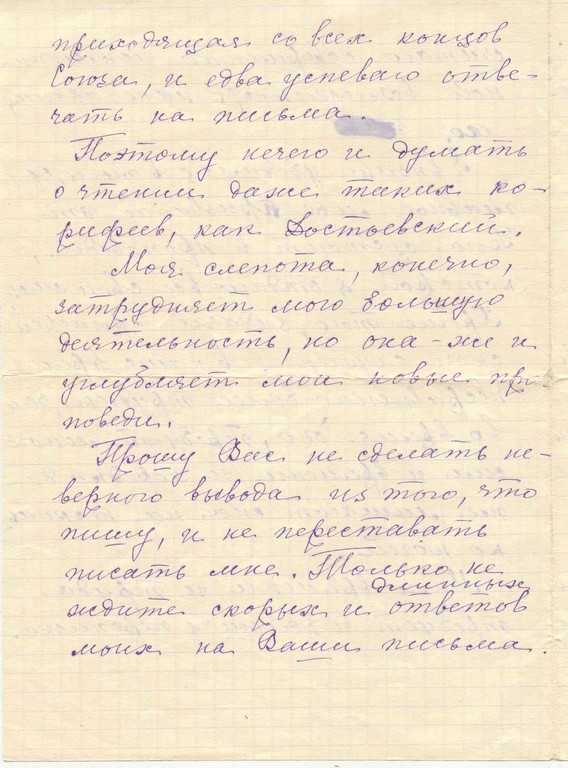 приходящая со всех концов
Союза, и едва успеваю отве-
чать на письма.
Поэтому нечего и думать
о чтении даже таких ко-
рифеев, как Достоевский.
Моя слепота, конечно,
затрудняет мою большую
деятельность, но она-же и
углубляет мои новые про-
поведи.
Прошу Вас не сделать не-
верного вывода из того, что
пишу, и не переставать
писать мне. Только не
длинных
ждите скорых и ответов
моих на Ваши письма.